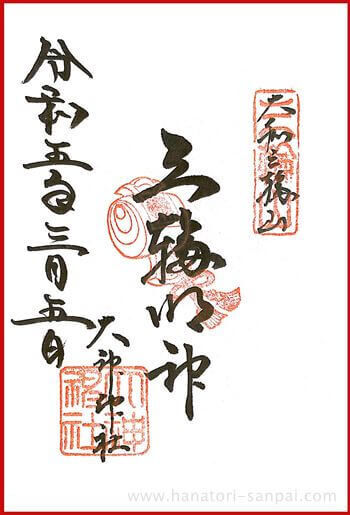 大和三輪山
三輪明神
大神神社
令和五年三月五日
www.hanatori-sanpai.com